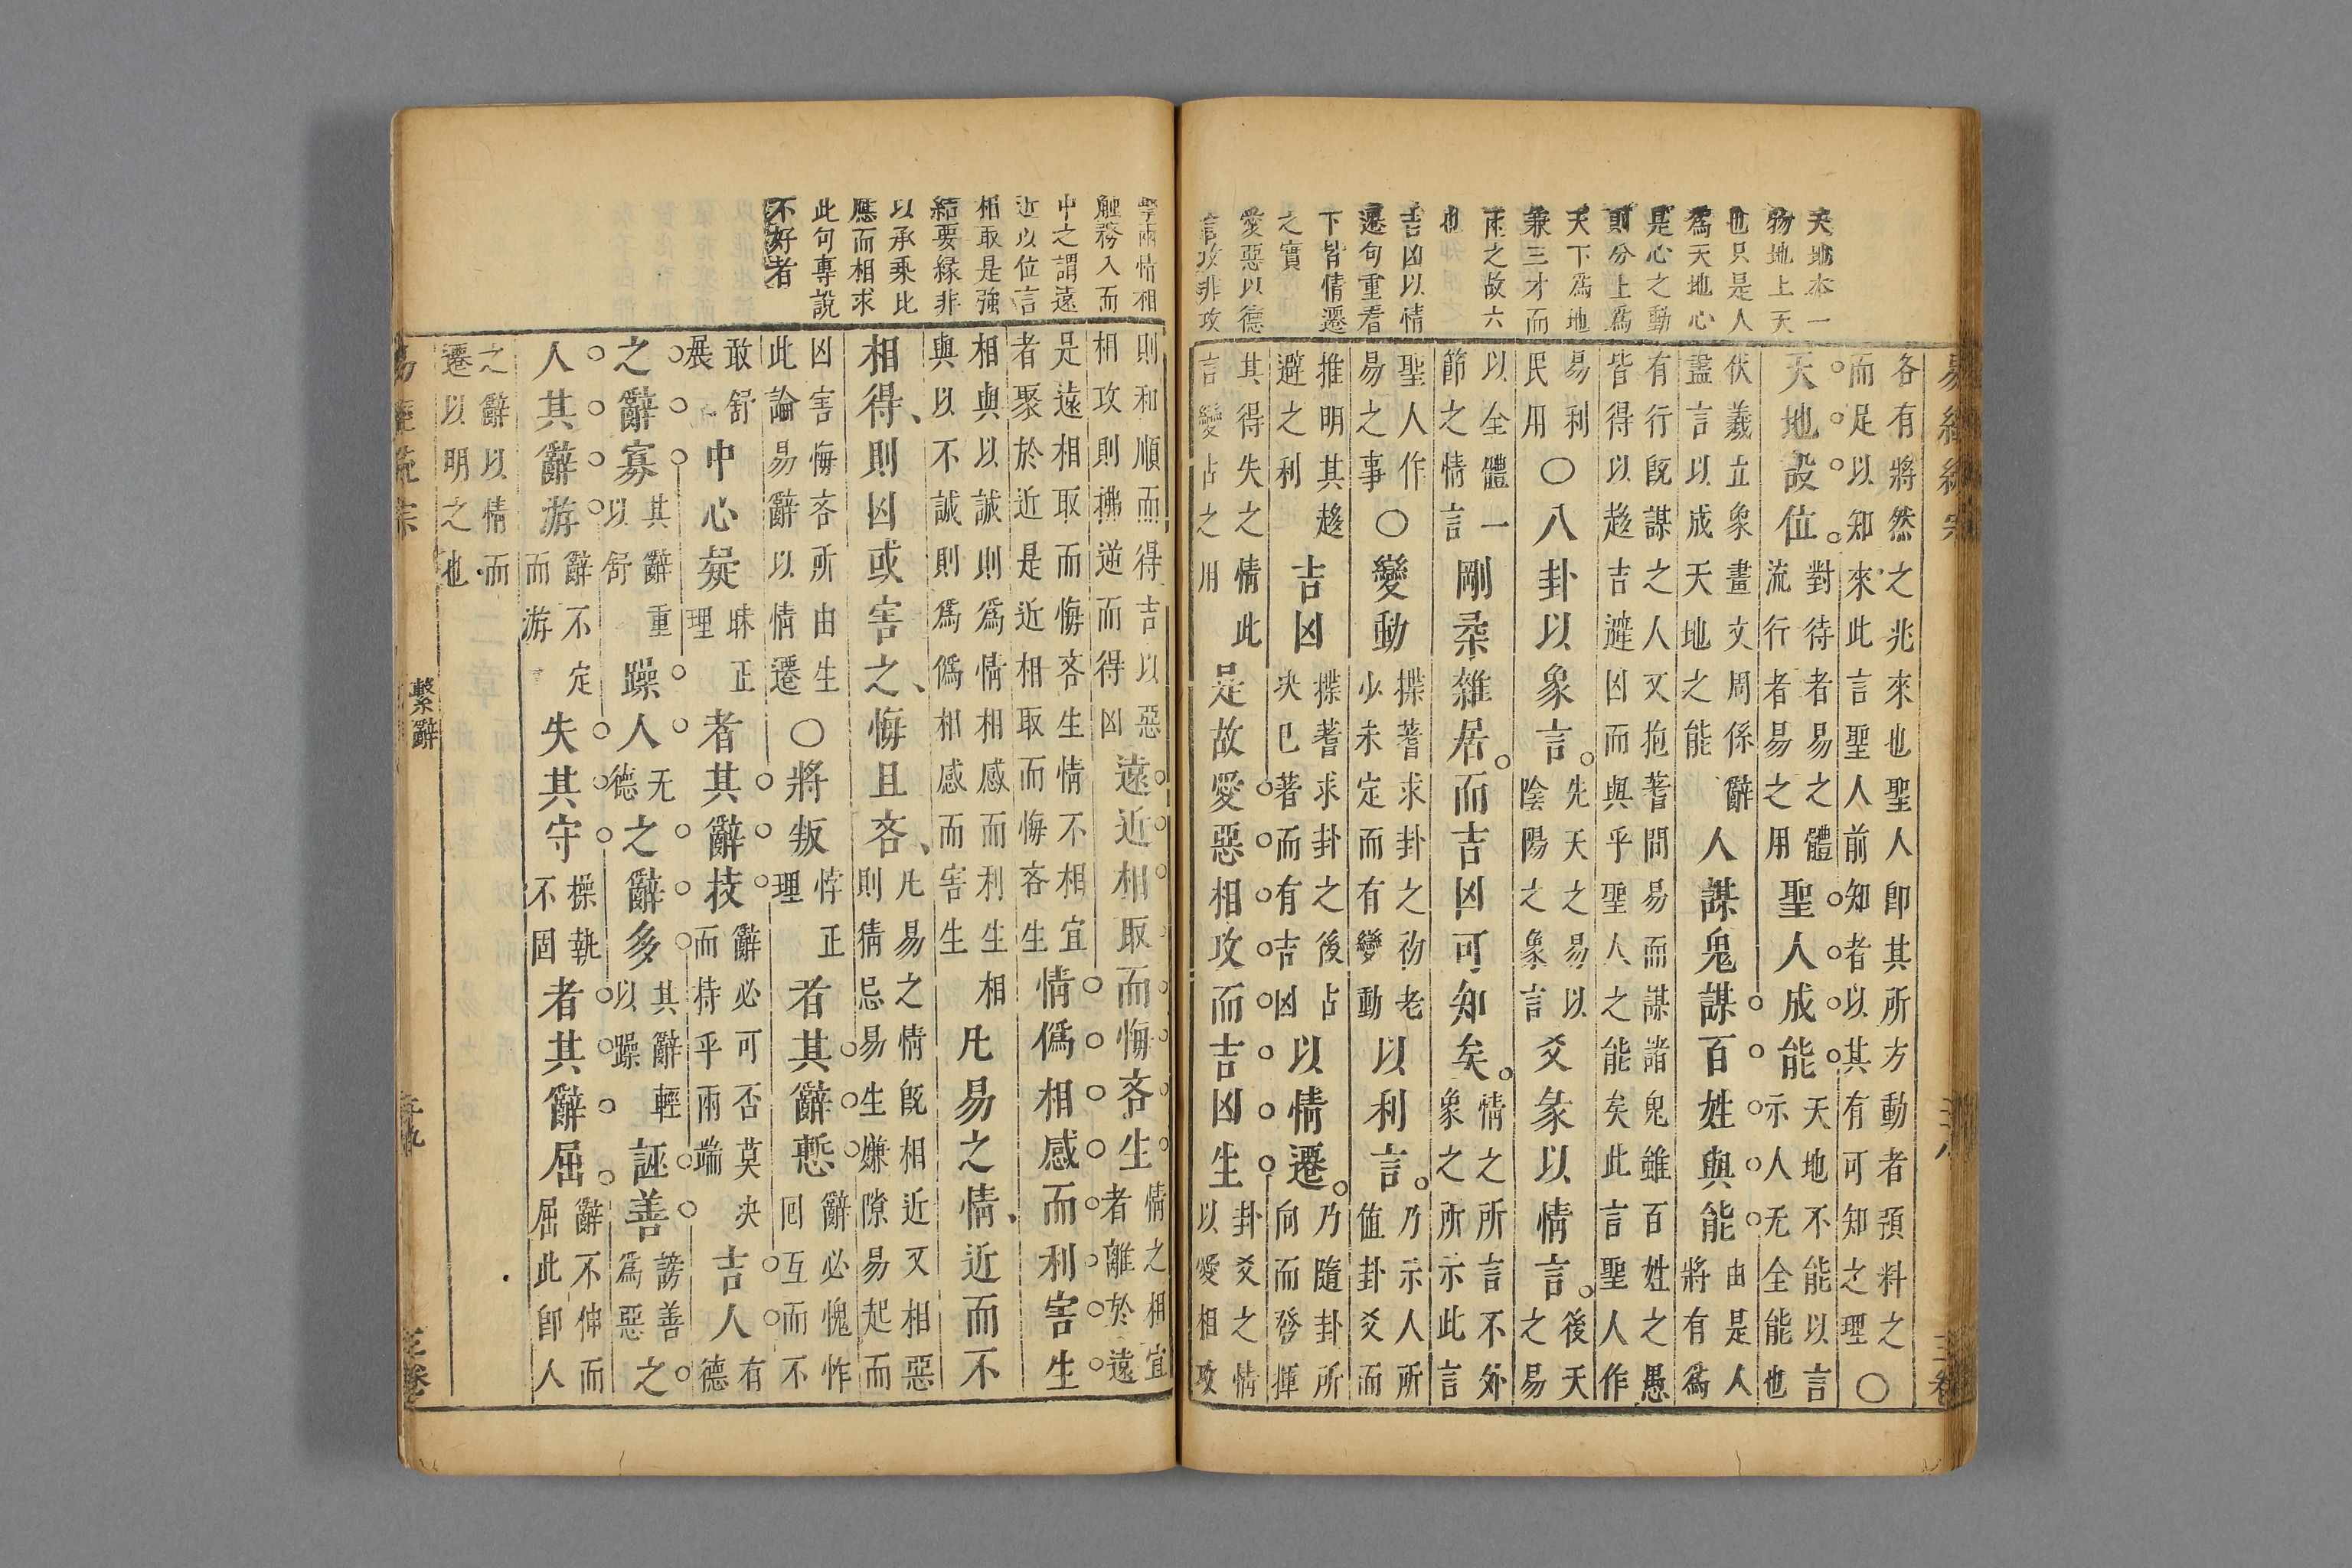 天地本一
物地上天
也只是人
爲天地心
是心之動
則分上爲
天下爲地
兼三才而
兩之故六
也
吉凶以情
遷句重看
下皆情遷
之實
愛惡以德
言攻非攻
各有將然之兆來也聖人卽其所方動者預料之
而足以知來此言聖人前知者以其有可知之理○
天地設位。對待者易之體流行者易之用聖人成能。天地不能以言示人无全能也
伏羲立象畫文周係辭
盡言以成天地之能人謀鬼謀百姓與能由是人將有爲
有行旣謀之人又抱蓍問易而謀諸鬼雖百姓之愚
皆得以趨吉避凶而與乎聖人之能矣此言聖人作
易利
民用○八卦以象言。先天之易以陰陽之象言爻彖以情言。後天之易
以全體一
節之情言剛柔雜居。而吉凶可知矣。情之所言不外象之所示此言
聖人作
易之事○變動揲蓍求卦之初老少未定而有變動以利言。乃示人所值卦爻而
推明其趨
避之利吉凶揲蓍求卦之後占決已著而有吉凶以情遷。乃隨卦所向而發揮
其得失之情此
言變占之用是故愛惡相攻而吉凶生卦爻之情以愛相攻
易經
三卷
擊兩情相
觸務入而
中之謂遠
近以位言
相取是強
結要緣非
以承乘比
應而相求
此句專說
不好者
則和順而得吉以惡
相攻則拂逆而得凶遠近相取而悔吝生情之相宜者離於遠
是遠相取而悔吝生情不相宜
者聚於近是近相取而悔吝生情僞相感而利害生
相與以誠則爲情相感而利生相
與以不誠則爲僞相感而害生凡易之情、近而不
相得、則凶或害之、悔且吝、凡易之情旣相近又相惡則猜忌易生嫌隙易起而
凶害悔吝所由生
此論易辭以情遷○將叛悖正理者其辭慙辭必愧怍回互而不
敢舒
展中心疑昧正理者其辭枝辭必可否莫決而持乎兩端吉人有德
之辭寡其辭重以舒躁人无德之辭多其辭輕以躁誣善謗善爲惡之
人其辭游辭不定而游失其守操執不固者其辭屈。辭不伸而屈此卽人
之辭以情而
遷以明之也
繫辭
三卷